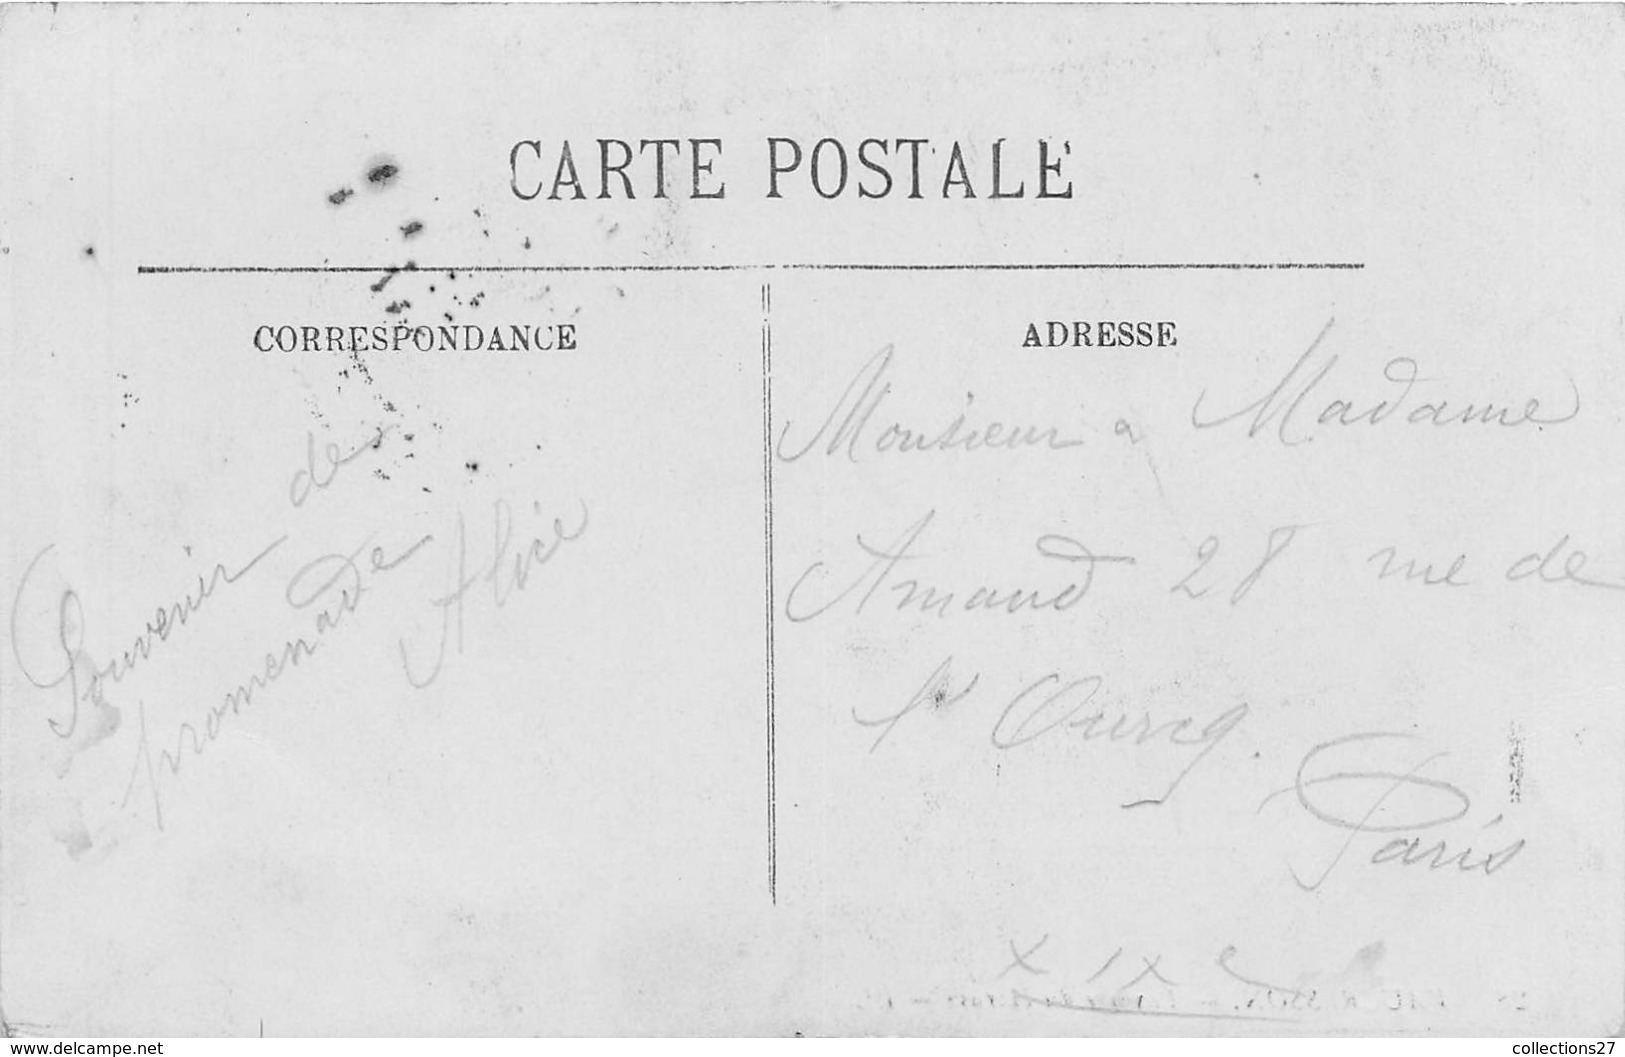 CARTE POSTALE
CORRESPONDANCE
Souvenir de
promenade
Alice
ADRESSE
Monsieur a Madame
Amand 28 rue de
l' Ourcq.
Paris
XIXe
www.delcampe.net
collections27